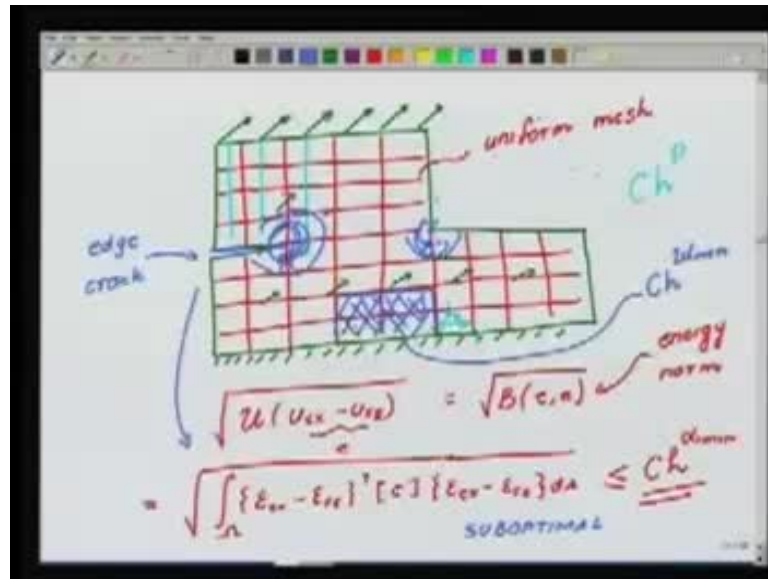 uniform mesh
Ch^p
edge
crack
Ch^αmin
energy
norm
√U(u_ex − u_FE) = √B(e,e)
e
= √∫_Ω {ε_ex − ε_FE}^T [C] {ε_ex − ε_FE} dA ≤ Ch^αmin
SUBOPTIMAL